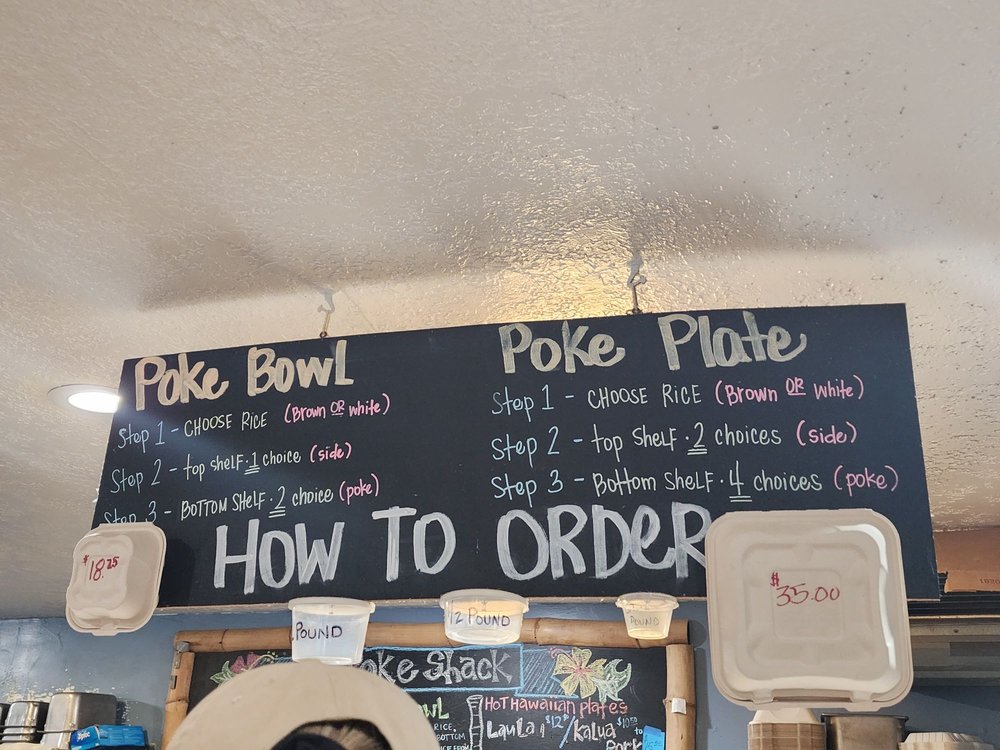 Poke Bowl
Step 1 - CHOOSE RICE (Brown OR white)
Step 2 - top SHELF · 1 choice (side)
Step 3 - BOTTOM SHELF · 2 choice (poke)
Poke Plate
Step 1 - CHOOSE RICE (Brown OR white)
Step 2 - top SHELF · 2 choices (side)
Step 3 - BOTTOM SHELF · 4 choices (poke)
HOW TO ORDER
$18.25
$35.00
POUND
1/2 POUND
POUND
oke SHACK
HOT HAWAIIAN PLATES
LauLau $12 / Kalua $10.50
Pork
WL
RICE,
BOTTOM